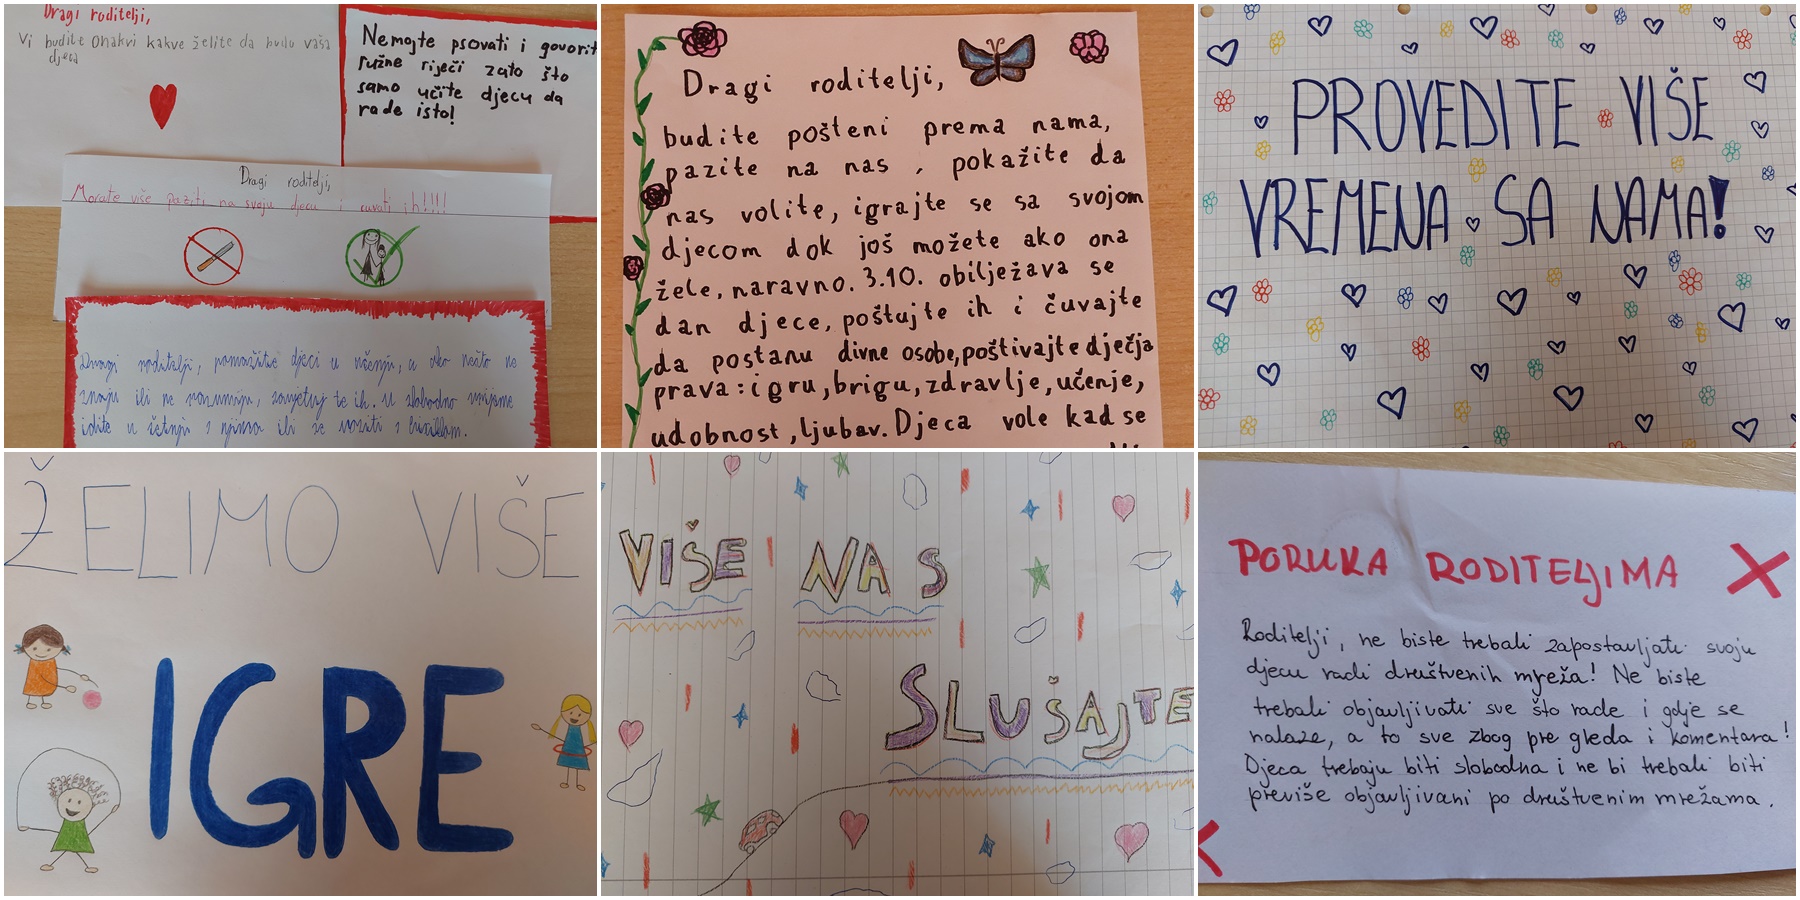 Dragi roditelji,
Vi budite onakvi kakve želite da budu vaša
djeca
Nemojte psovati i govorit
ružne riječi zato što
samo učite djecu da
rade isto!
Dragi roditelji,
Morate više paziti na svoju djecu i čuvati ih!!!!
Dragi roditelji, pomozite djeci u učenju, a ako nešto ne
znaju ili ne razumiju, savjetuj te ih. U slobodno vrijeme
idite u šetnju s njima ili se voziti s biciklom.
Dragi roditelji,
budite pošteni prema nama,
pazite na nas , pokažite da
nas volite, igrajte se sa svojom
djecom dok još možete ako ona
žele, naravno. 3.10. obilježava se
dan djece, poštujte ih i čuvajte
da postanu divne osobe, poštivajte dječja
prava: igru, brigu, zdravlje, učenje,
udobnost, ljubav. Djeca vole kad se
PROVEDITE VIŠE
VREMENA SA NAMA!
ŽELIMO VIŠE
IGRE
VIŠE NAS
SLUŠAJTE
PORUKA RODITELJIMA
Roditelji, ne biste trebali zapostavljati svoju
djecu radi društvenih mreža! Ne biste
trebali objavljivati sve što rade i gdje se
nalaze, a to sve zbog pre gleda i komentara!
Djeca trebaju biti slobodna i ne bi trebali biti
previše objavljivani po društvenim mrežama.